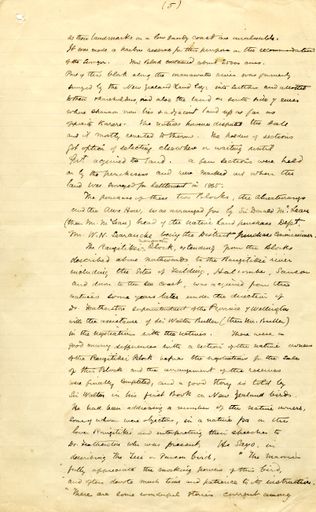 (5)
as their landmarks on a low sandy coast are invaluable.
It was made a harbor reserve for this purpose on the recommendation
of the Surveyor. This Block contained about 25000 acres.
Part of this block along the Manawatu river was formerly
surveyed by the New Zealand Land Coy. into sections and allotted
to their shareholders, and also the land on south side of river
where Shannon now lies and adjacent land up as far as
Opaeti Karere. The natives however disputed the sale
and it mostly reverted to them. The holders of sections
got option of selecting elsewhere or waiting until
Govt acquired the land. A few sections were held
on by the purchasers and were marked out when the
land was surveyed for settlement in 1865.
The purchase of these two Blocks, the Ahuaturanga
and the Awa Hou, was arranged for by Sir Donald McLean
(then Mr. McLean) head of the Native land purchase Dept.
Mr. W. N. Searancke being the District purchase Commissioner.
The Rangitikei Manawatu block, extending from the blocks
described above northwards to the Rangitikei river
including the sites of Feilding, Halcombe, Sanson
and down to the sea coast, was acquired from the
natives some years later under the direction of
Dr. Featherston superintendent of the Province of Wellington
with the assistance of Sir Walter Buller (then Mr. Buller)
in the negotiation with the natives. There were a
good many differences with a section of the native owners
of the Rangitikei Block before the negotiations for the sale
of this Block and the arrangement of the reserves
was finally completed, and a good story is told by
Sir Walter in his first book on New Zealand birds.
He had been addressing a number of the native owners,
some of whom was objectors, in a native pa on the
lower Rangitikei and interpreting their speeches to
Dr. Featherston who was present. He says, in
describing the Tui or Parson bird, "The Maoris
"fully appreciate the mocking powers of this bird,
"and often devote much time and patience to its instruction.
"There are some wonderful stories current among